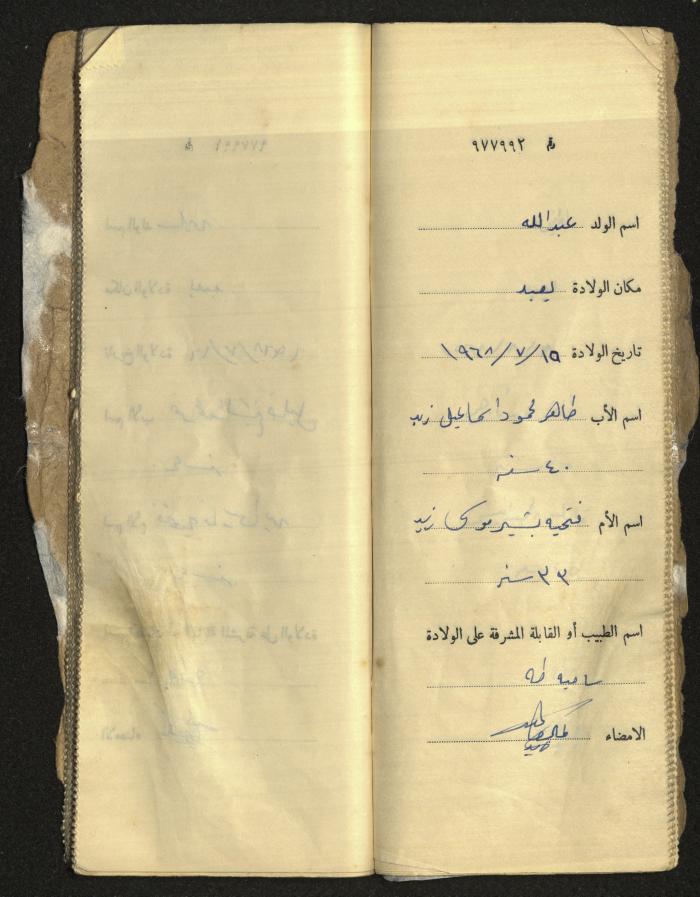 رقم ٩٧٧٩٩٢
اسم الولد عبدالله
مكان الولادة يعبد
تاريخ الولادة ١٩٦٨/٧/١٥
اسم الأب طاهر محمود اسماعيل زيد
٤٠ سنه
اسم الأم فتحيه بشير موسى زيد
٣٣ سنه
اسم الطبيب أو القابلة المشرفة على الولادة
ساميه طه
الامضاء